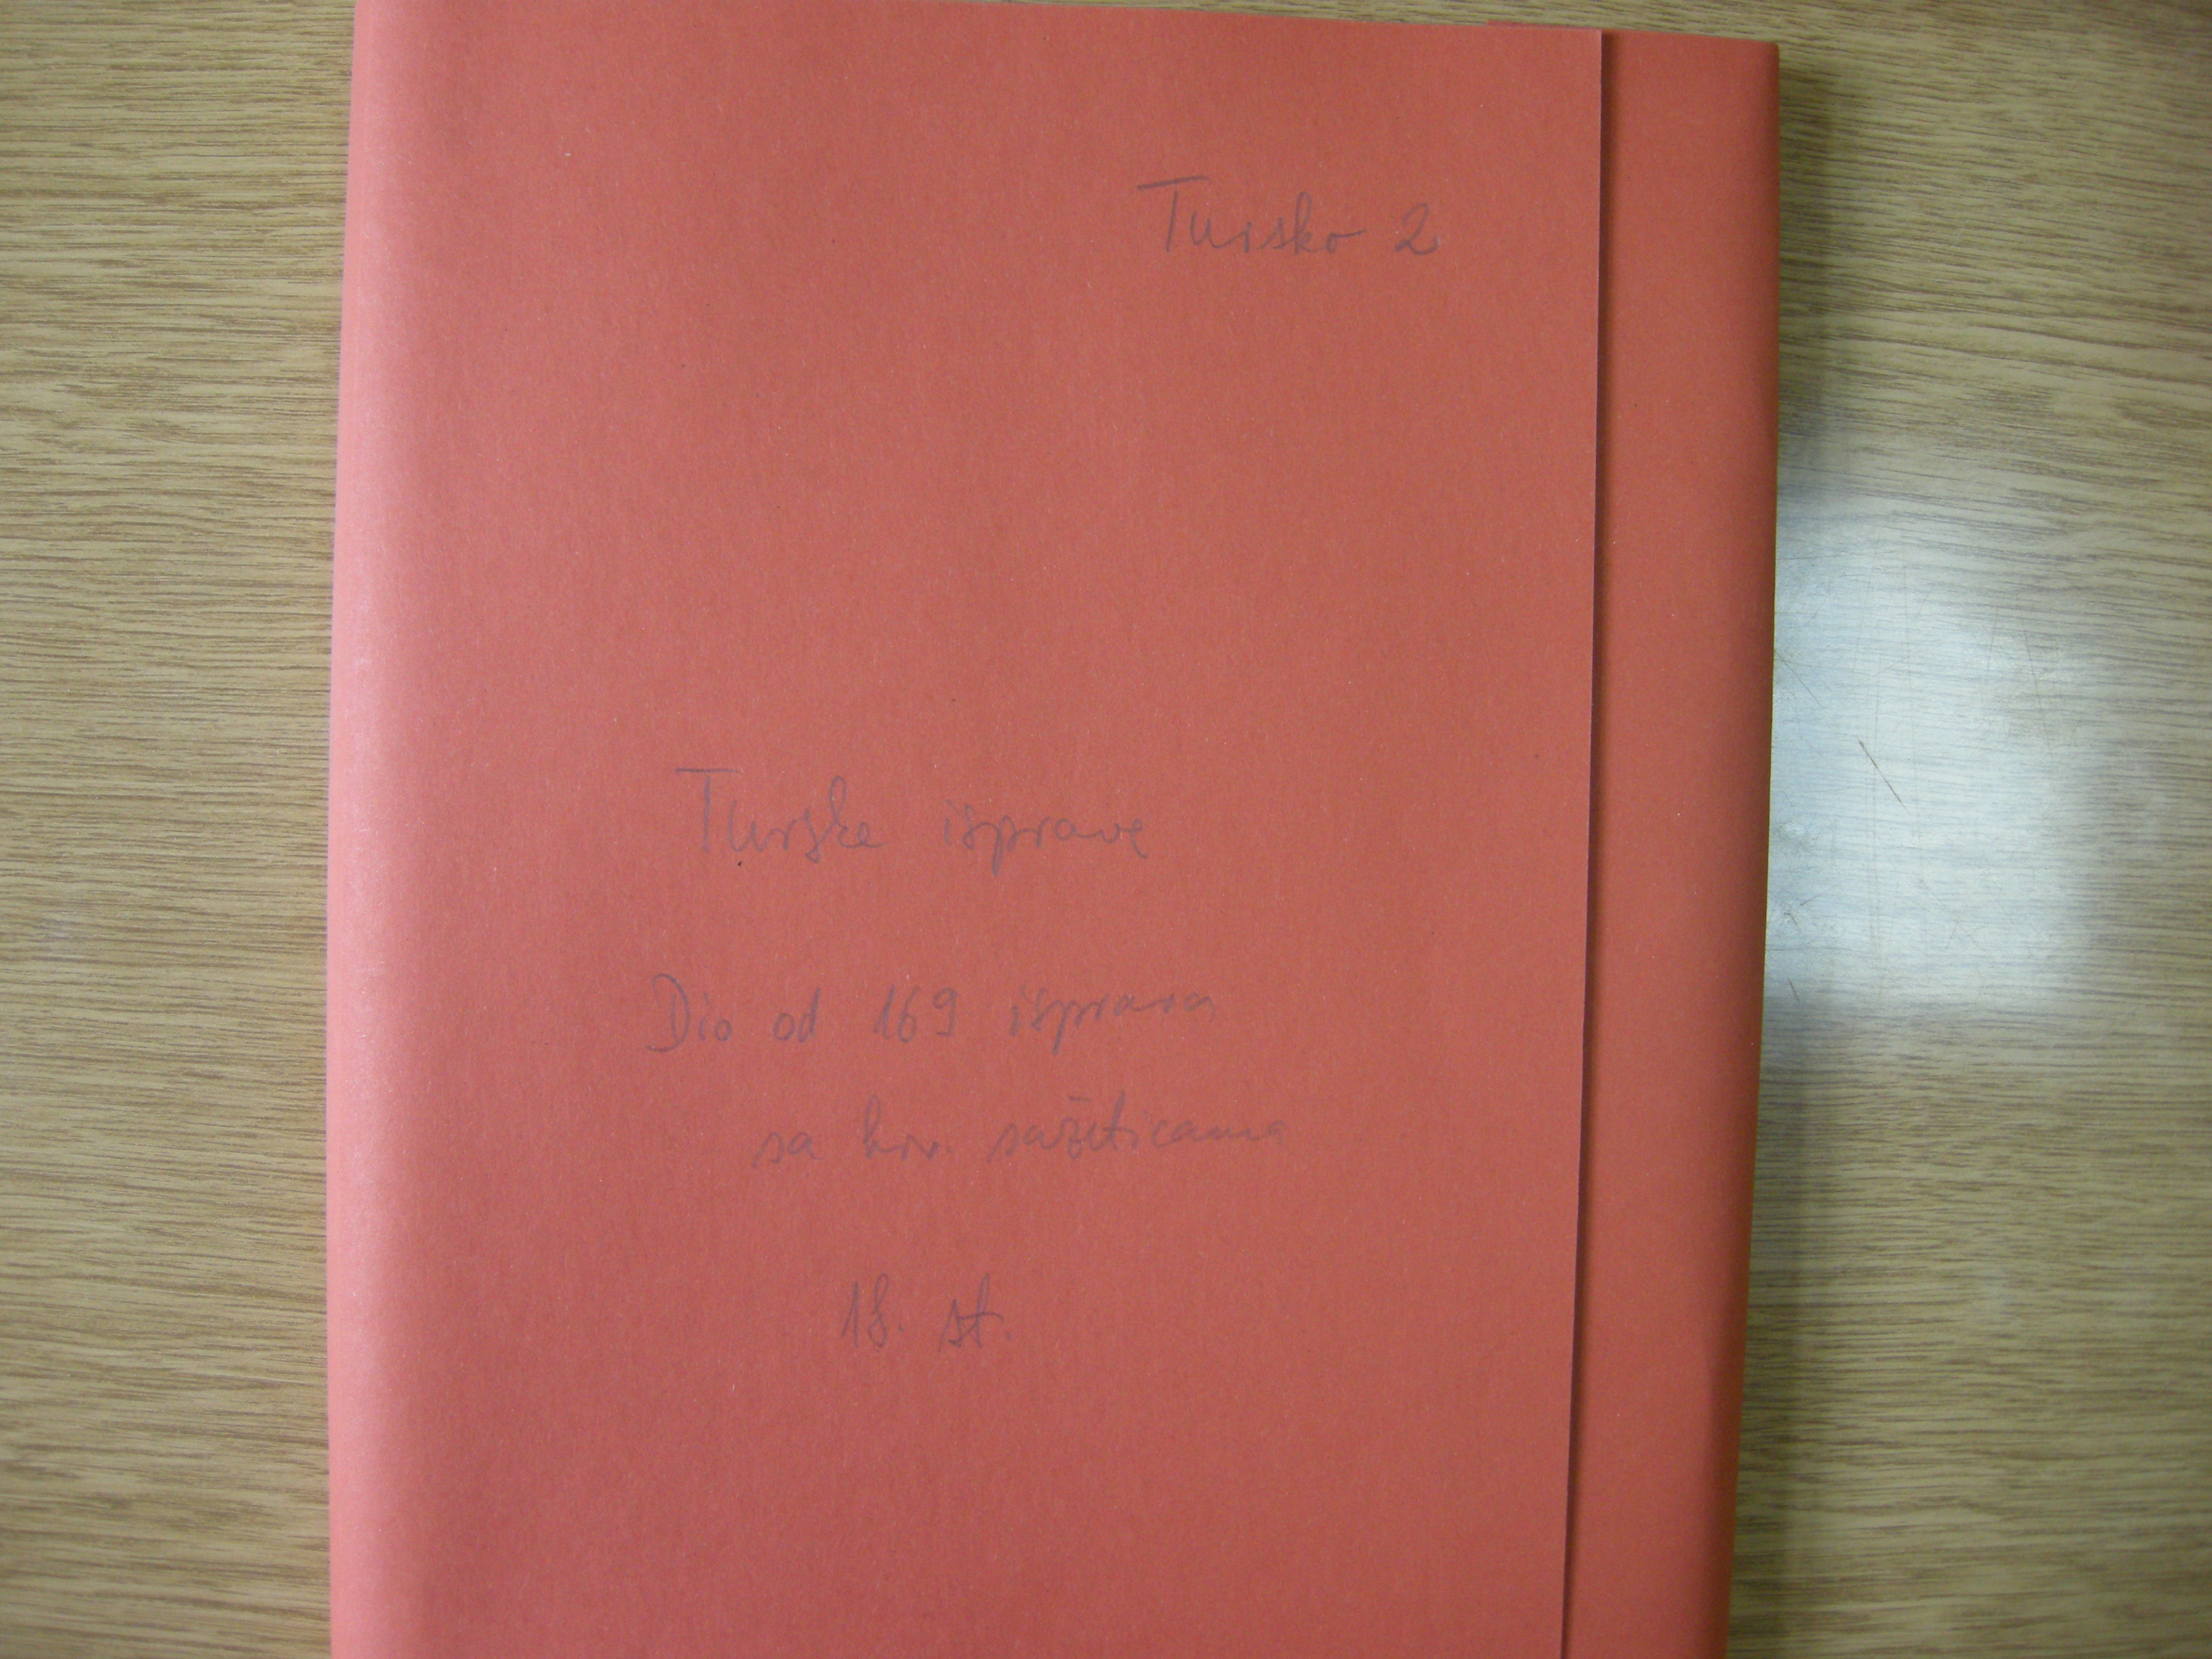 Tursko 2
Turske isprave
Dio od 169 isprava
sa hrv. sažeticama
18. st.